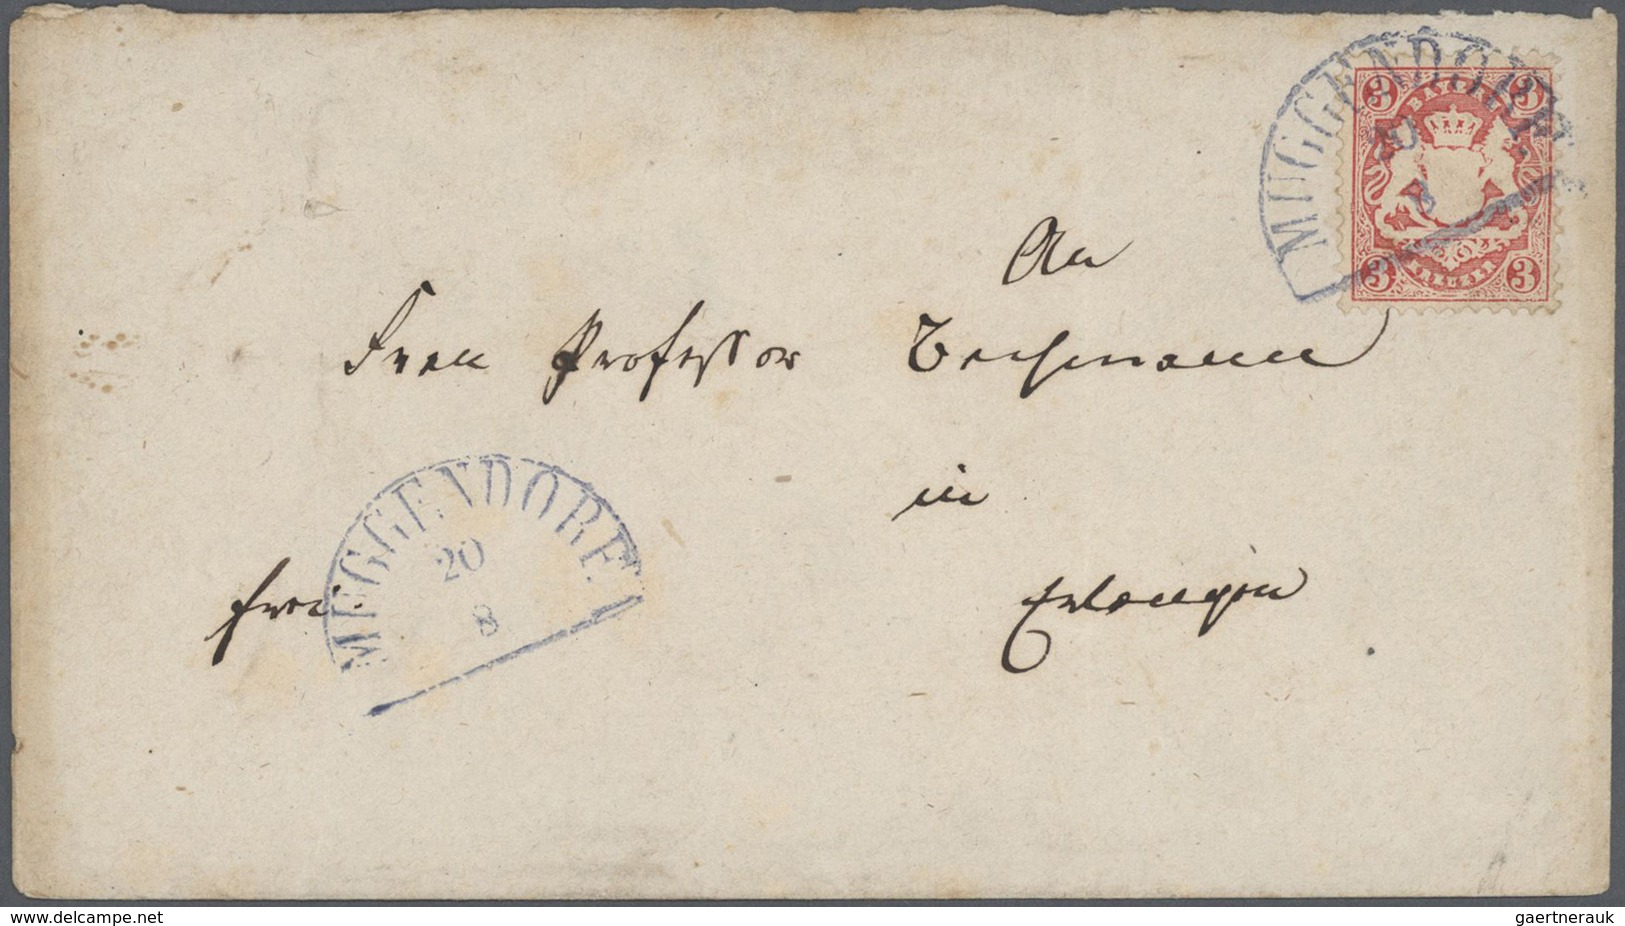 MUGGENDORF.
20
8
3 BAYERN 3
3 KREUZER 3
An
Frau Professor
in
Erlangen
MUGGENDORF.
20
8
frei.
www.delcampe.net
gaertnerauk